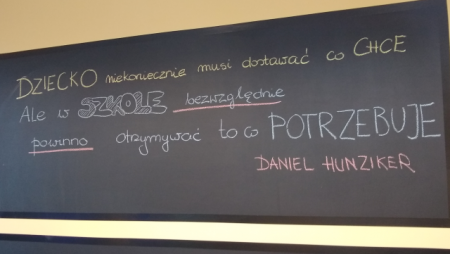 DZIECKO niekoniecznie musi dostawać co CHCE
Ale w SZKOLE bezwzględnie
powinno otrzymywać to co POTRZEBUJE
DANIEL HUNZIKER